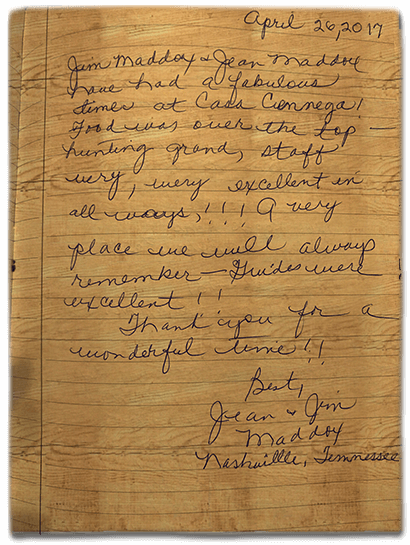 April 26, 2017
Jim Maddox & Jean Maddox
have had a fabulous
times at Casa Cienega!
Food was over the top —
hunting grand, staff
very, very excellent in
all ways, !!! A very
place we will always
remember — Guides were
excellent!!
Thank you for a
wonderful time!!
Best,
Jean & Jim
Maddox
Nashville, Tennessee